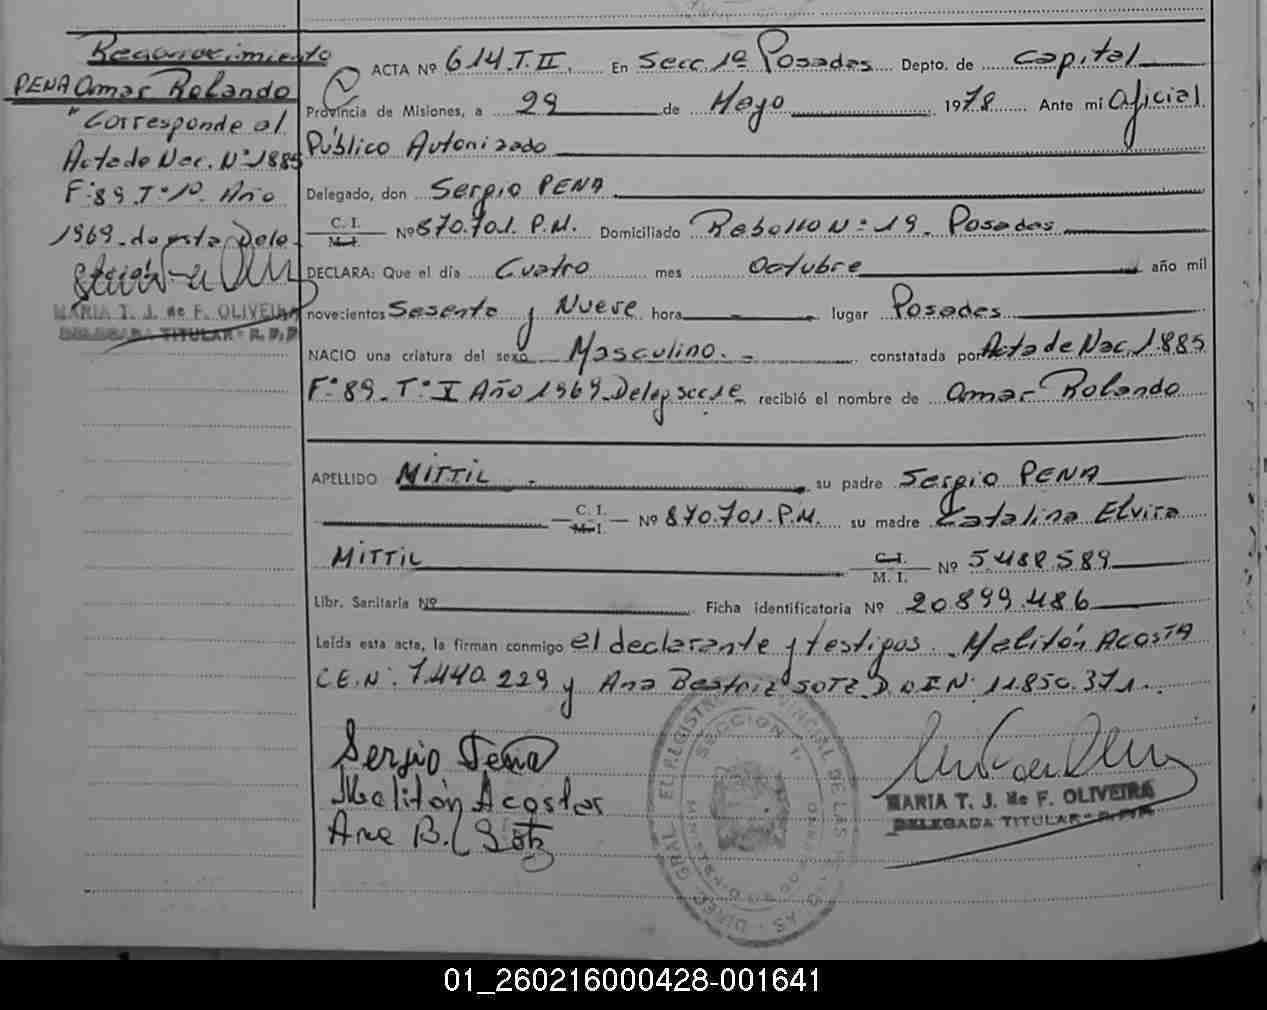 Reconocimiento
PENA Omar Rolando
"Corresponde al
Acta de Nac. Nº 1885
Fº 89. Tº 1º. Año
1969. de esta Dele-
MARIA T. J. de F. OLIVEIRA
DELEGADA TITULAR - R. P. P.
ACTA Nº 614. T. II. En Secc. 1º Posadas Depto. de Capital
Provincia de Misiones, a 29 de Mayo 1978 Ante mi Oficial
Público Autorizado
Delegado, don Sergio PENA
C. I.
M. I.
Nº 870.701. P.M. Domiciliado Rebollo Nº 19. Posadas
DECLARA: Que el día Cuatro mes Octubre año mil
novecientos Sesenta y Nueve hora lugar Posadas
NACIO una criatura del sexo Masculino. constatada por Acta de Nac. 1885
Fº 89. Tº I Año 1969. Deleg secc 1ª recibió el nombre de Omar Rolando
APELLIDO MITTIL su padre Sergio PENA
C. I.
M. I.
Nº 870.701. P.M. su madre Catalina Elvira
MITTIL
C. I.
M. I.
Nº 5.488.589
Libr. Sanitaria Nº Ficha identificatoria Nº 20.899.486
Leída esta acta, la firman conmigo el declarante y testigos. Melitón ACOSTA
C.E.Nº. 7.440.229 y Ana Beatriz SOTZ D N I Nº 11.850.371.
Sergio Pena
Melitón Acosta
Ana B. Sotz
DIREC. GRAL. EL REGISTRO PROVINCIAL DE LAS
SECCION 1ª
MARIA T. J. de F. OLIVEIRA
DELEGADA TITULAR - R. P. P.
01_260216000428-001641